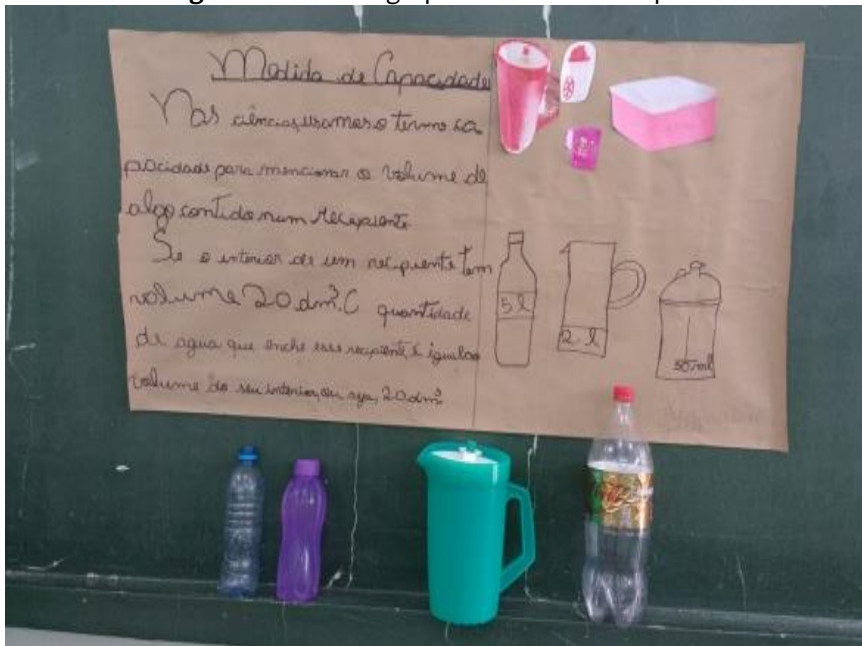 Medida de Capacidade
Nas ciências, usamos o termo ca
pacidade para mencionar o volume de
algo contido num recipiente.
Se o interior de um recipiente tem
volume 20 dm³. C quantidade
de agua que enche esse recipiente é igual ao
volume do seu interior, ou seja, 20 dm³
5 l
2 l
50 ml